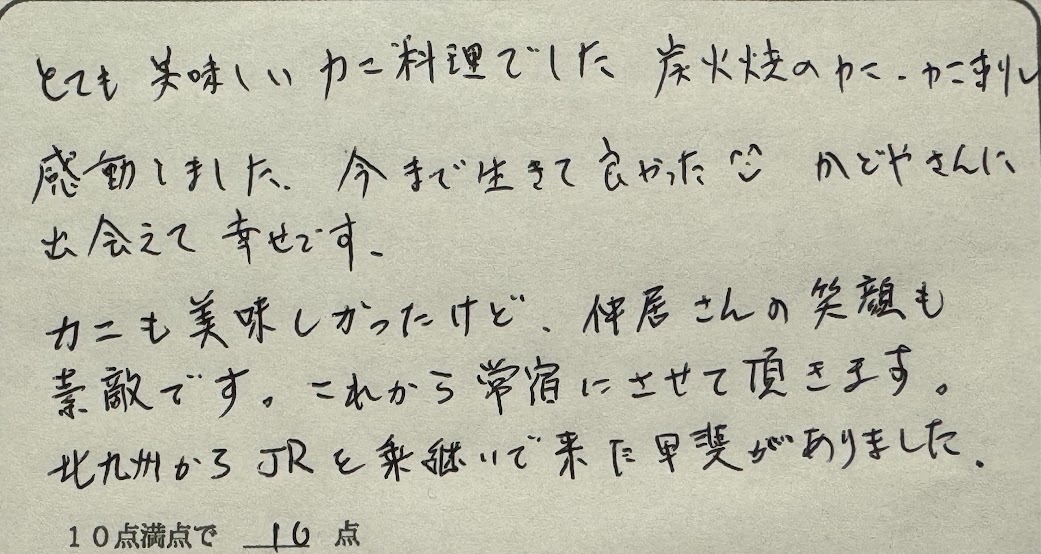 とても美味しいカニ料理でした 炭火焼のカニ・カニ刺し
感動しました、今まで生きて良かった^^ かどやさんに
出会えて幸せです、
カニも美味しかったけど、仲居さんの笑顔も
素敵です。これから常宿にさせて頂きます。
北九州からJRを乗継いで来た甲斐がありました、
10点満点で 10 点